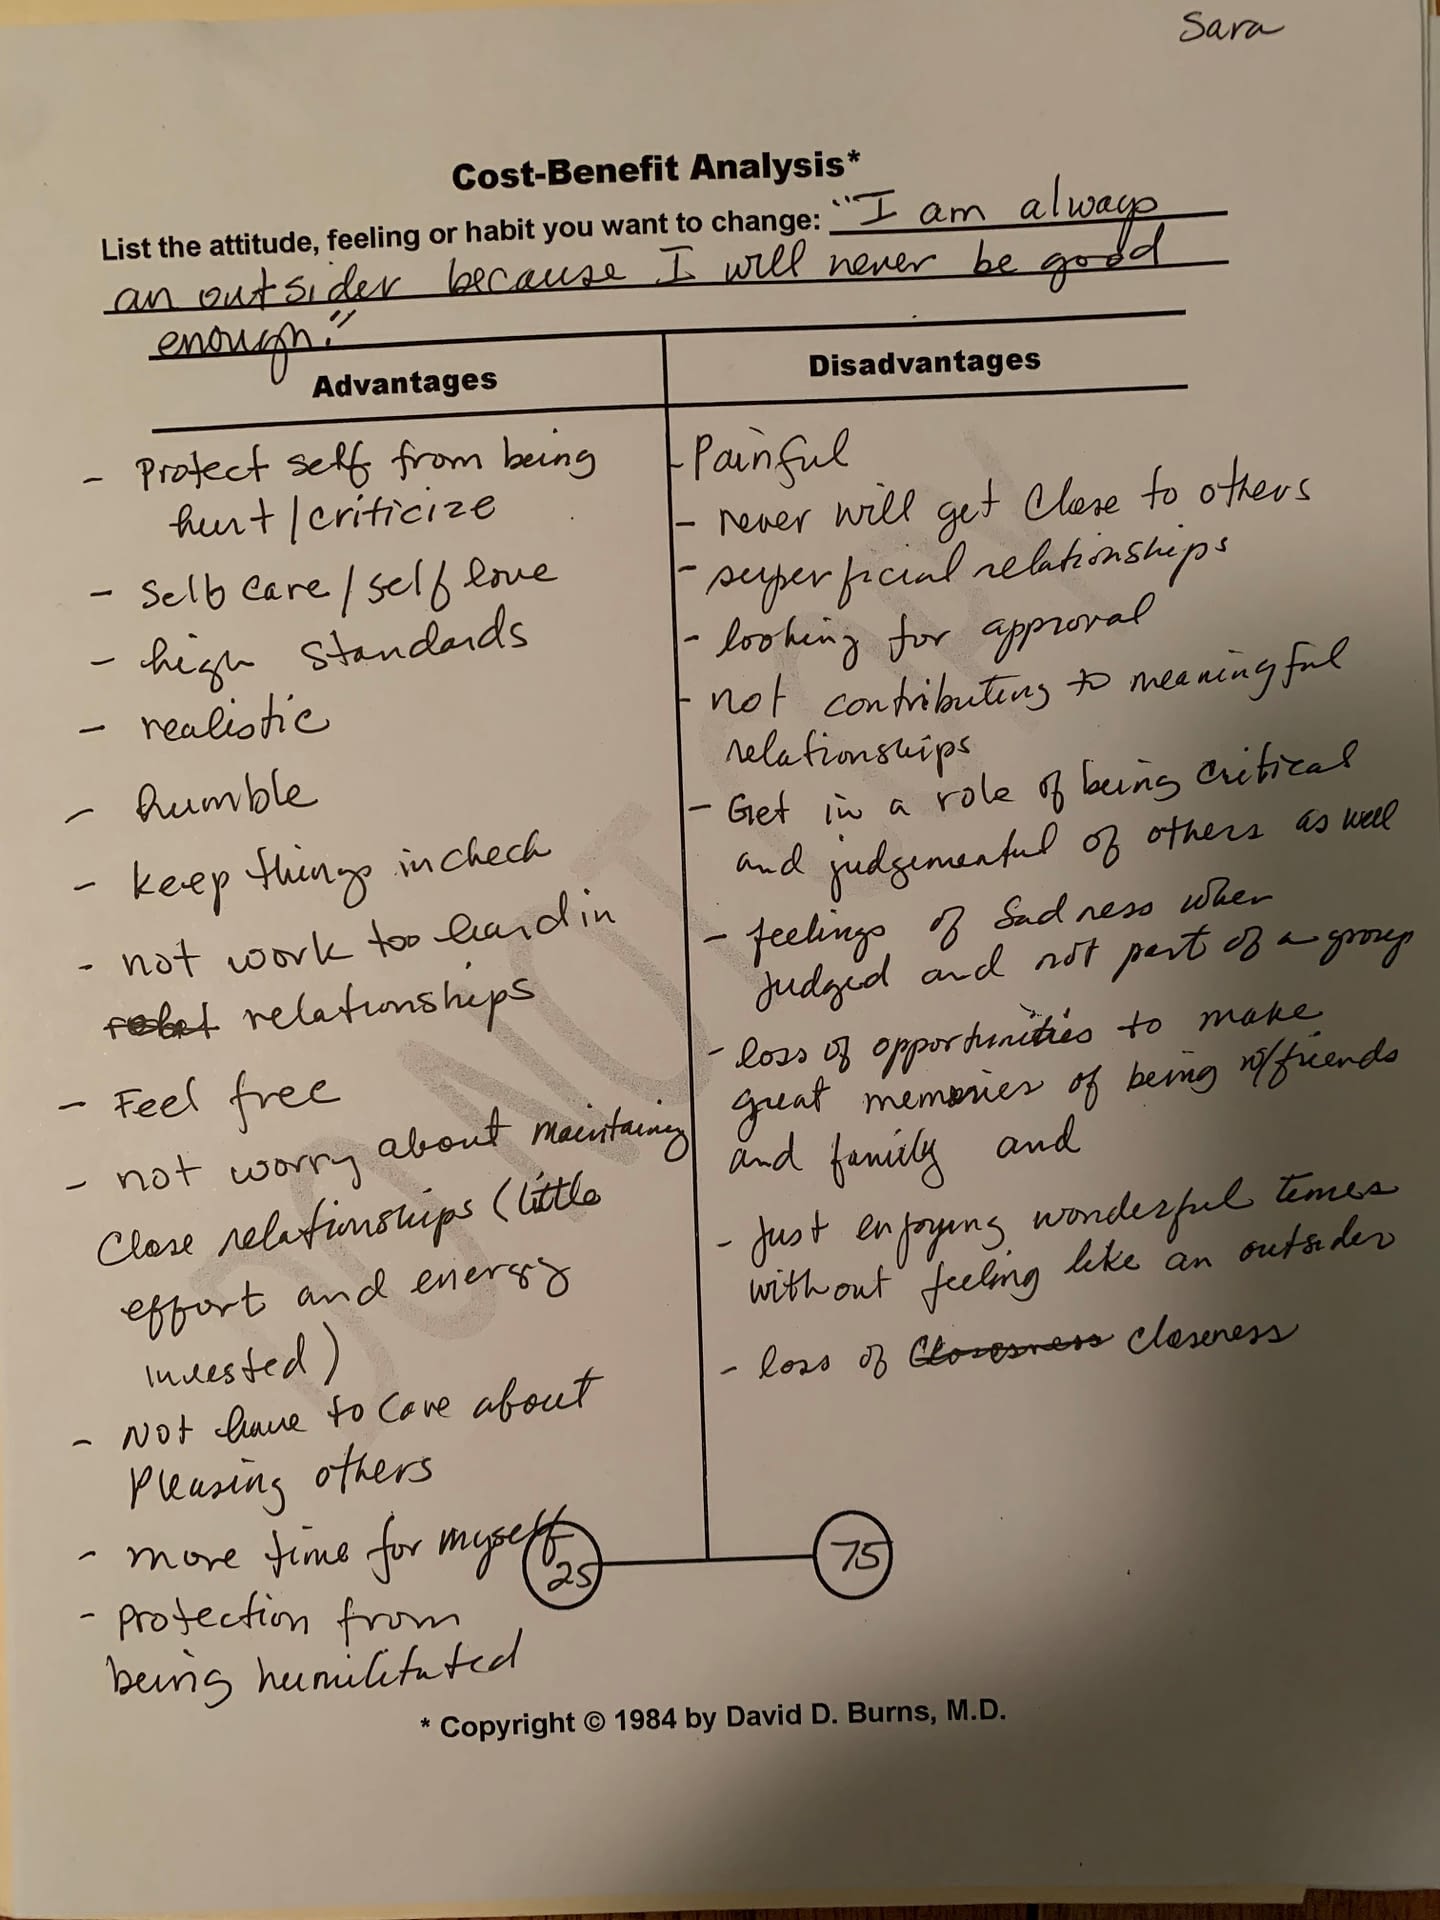 Sara
Cost-Benefit Analysis*
List the attitude, feeling or habit you want to change: "I am always
an outsider because I will never be good
enough."
Advantages
- Protect self from being
hurt/criticize
- Self care/self love
- high standards
- realistic
- humble
- keep things in check
- not work too hard in
relationships
- Feel free
- not worry about maintaining
close relationships (little
effort and energy
invested)
- Not have to care about
Pleasing others
- more time for myself
- protection from
being humilitated
25
Disadvantages
- Painful
- never will get close to others
- superficial relationships
- looking for approval
- not contributing to meaningful
relationships
- Get in a role of being critical
and judgemental of others as well
- feelings of sadness when
judged and not part of a group
- loss of opportunities to make
great memories of being w/friends
and family and
- Just enjoying wonderful times
without feeling like an outsider
- loss of Closesness closeness
75
* Copyright © 1984 by David D. Burns, M.D.
DO NOT